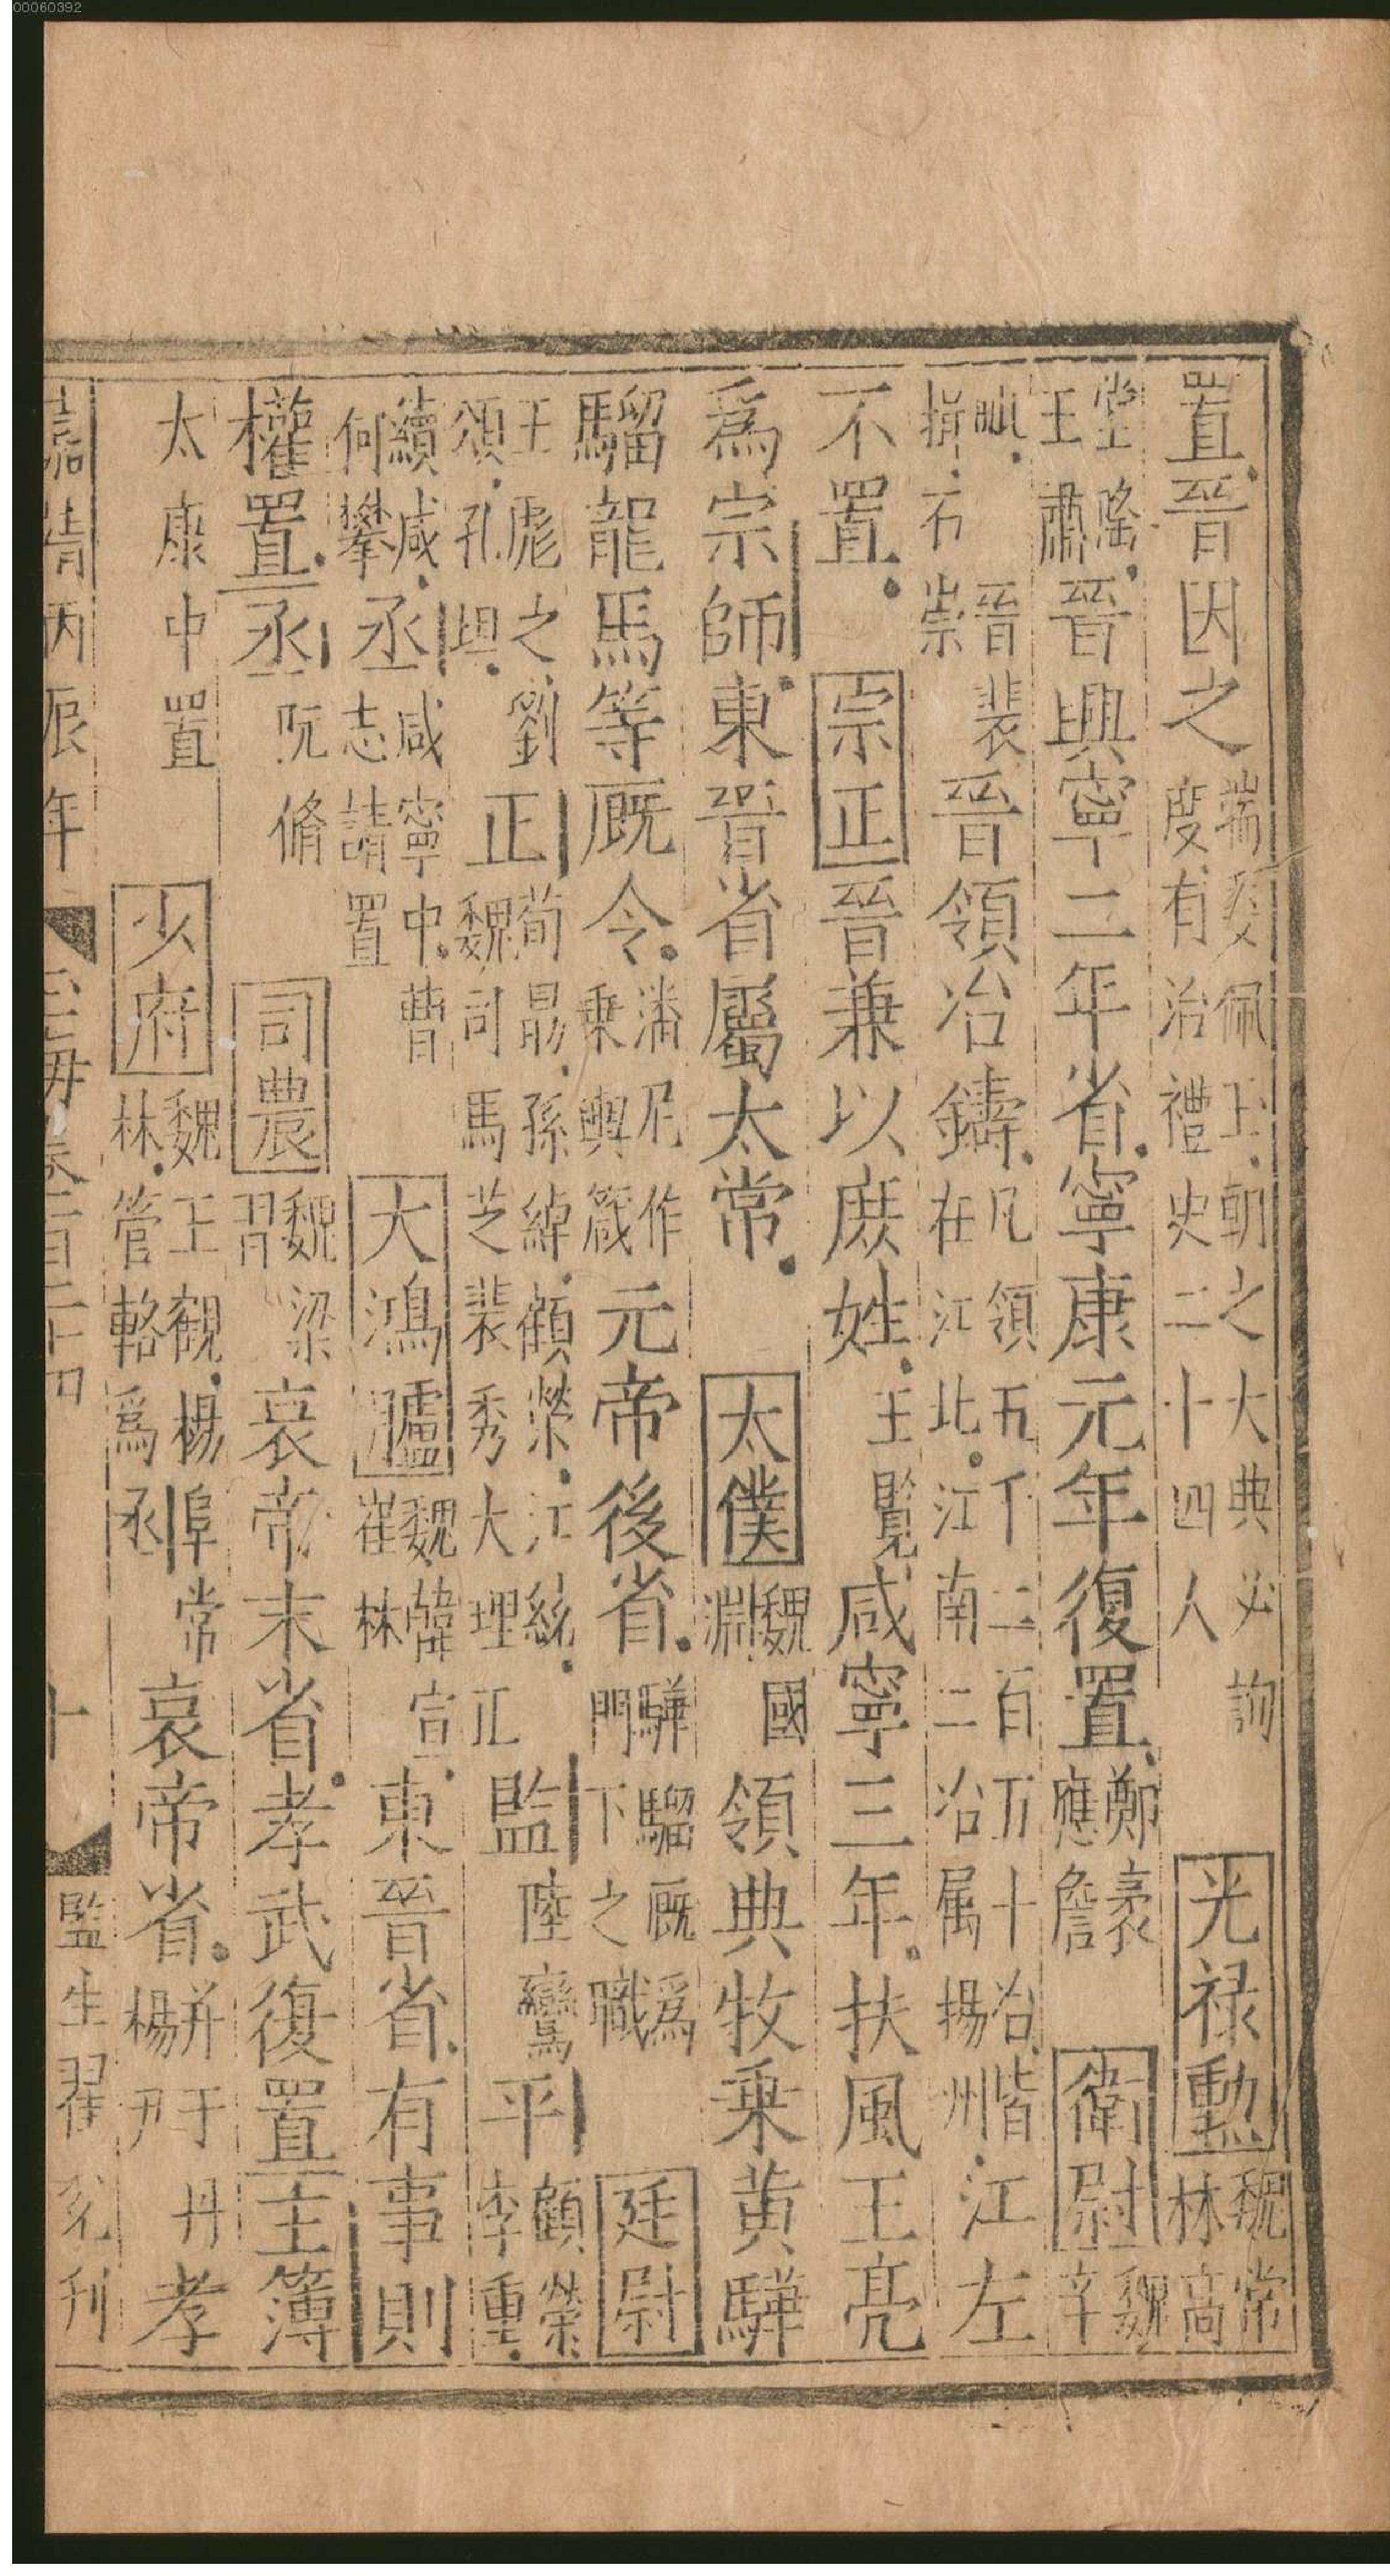 00060392
置晉因之端委佩玉朝之大典必詢度有治禮史二十四人光禄勳魏常林高
堂隆王肅晉興寧二年省寧康元年復置鄭袤應詹衛尉魏辛
毗晉裴揖石崇晉領冶鑄凡領五千二百万十冶皆在江北江南二冶属揚州江左
不置宗正晉兼以庶姓王覽咸寧三年扶風王亮
爲宗師東晉省屬太常太僕魏國淵領典牧乗黄驊
騮龍馬等厩令潘尼作乗輿箴元帝後省驊騮厩爲門下之職廷尉
王彪之劉頌孔坦正荀勗孫綽顧榮江統魏司馬芝裴秀大理正監陸鸞平顧榮李重
續咸何攀丞咸寧中曹志請置大鴻臚魏韓宣崔林東晉省有事則
權置丞阮脩司農魏梁習哀帝末省孝武復置主簿
太康中置少府魏王觀楊阜常林管輅爲丞哀帝省并丹楊尹于丹孝
嘉靖丙辰年 玉海卷一百二十四 十 監生翟 刊